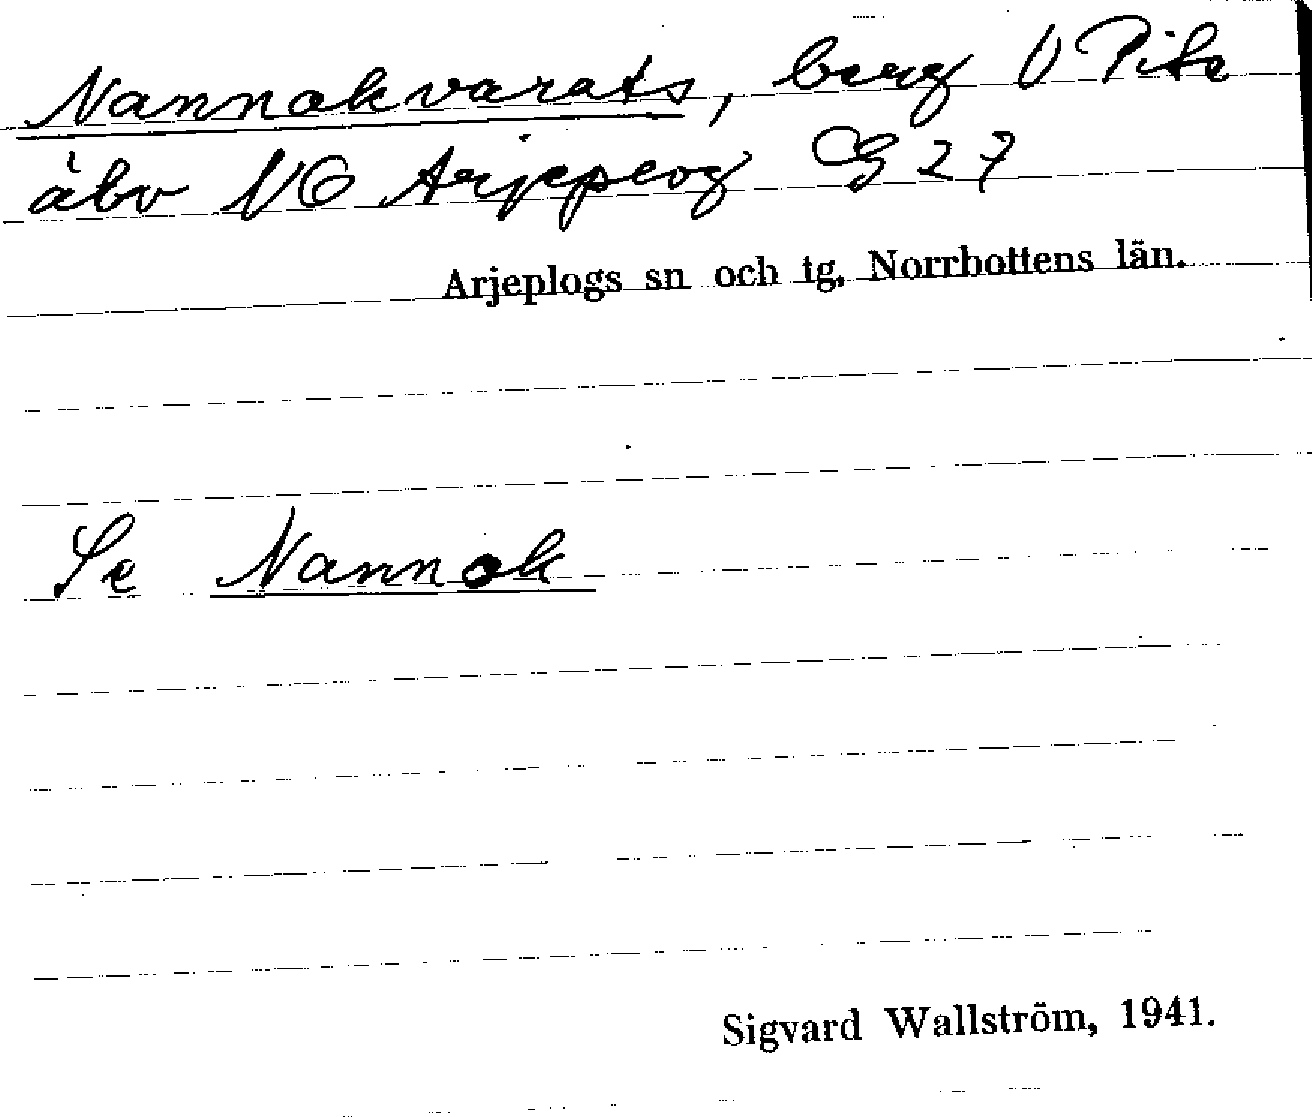 Nannokvarats, berg V Pite
älv NO Arjeplog G 27
Arjeplogs sn och tg, Norrbottens län.
Se Nannok
Sigvard Wallström, 1941.